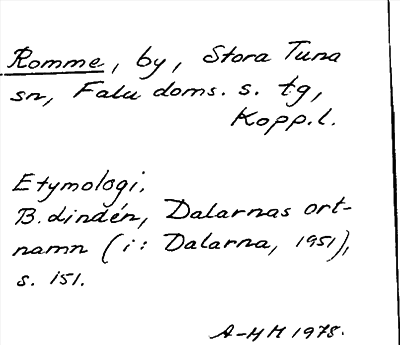 Romme, by, Stora Tuna
sn, Falu doms. s. tg,
Kopp.l.
Etymologi.
B. Lindén, Dalarnas ort-
namn (i: Dalarna, 1951),
s. 151.
A-HM 1978.